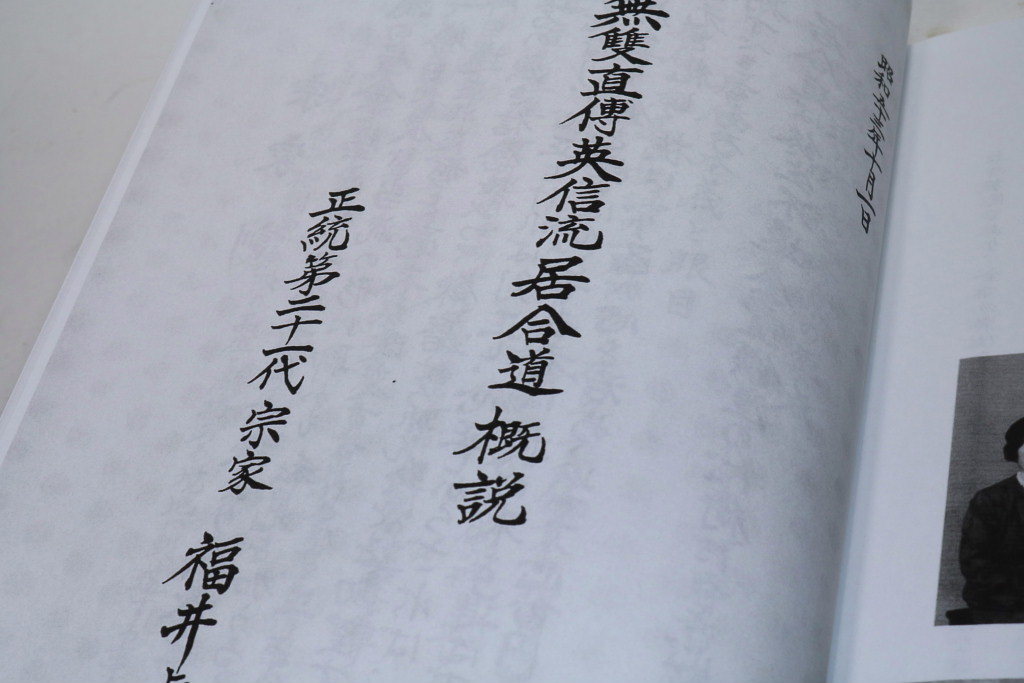 昭和五十五年十月一日
無雙直傳英信流居合道 概説
正統第二十一代 宗家 福井